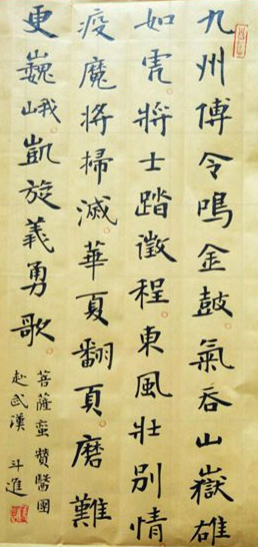 九州傳令鳴金鼓。氣吞山嶽雄
如虎。將士踏徵程。東風壯別情
疫魔將掃滅。華夏翻頁。磨難
更巍峨。凱旋義勇歌。
菩薩蠻 贊醫團
赴武漢 斗進